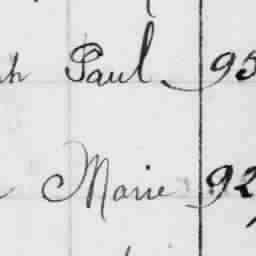 Paul 95
Marie 92